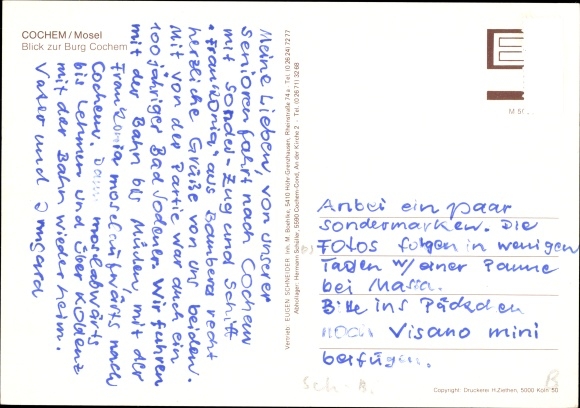 COCHEM / Mosel
Blick zur Burg Cochem
Meine Lieben, von unserer
Seniorenfahrt nach Cochem
mit Sonder-Zug und Schiff
"Franconia" aus Bamberg recht
herzliche Grüße von uns beiden.
Mit von der Partie war auch ein
100jähriger Bad Sodener. Wir fuhren
mit der Bahn bis Müden, mit der
Franconia moselaufwärts nach
Cochem. Dann moselabwärts
bis Lehmen und über Koblenz
mit der Bahn wieder heim.
Vater und Irmgard
Vertrieb: EUGEN SCHNEIDER Inh. M. Boehlke, 5410 Höhr-Grenzhausen, Rheinstraße 74a · Tel. (0 26 24) 72 77
Ablollager: Hermann Schaller, 5590 Cochem-Cond, An der Kirche 2 · Tel. (0 26 71) 32 68
M 50
Anbei ein paar
Sondermarken. Die
Fotos folgen in wenigen
Tagen w/ einer Panne
bei Massa.
Bitte ins Päckchen
noch Visano mini
beifügen.
Sch. B.
B
Copyright: Druckerei H. Ziethen, 5000 Köln 50